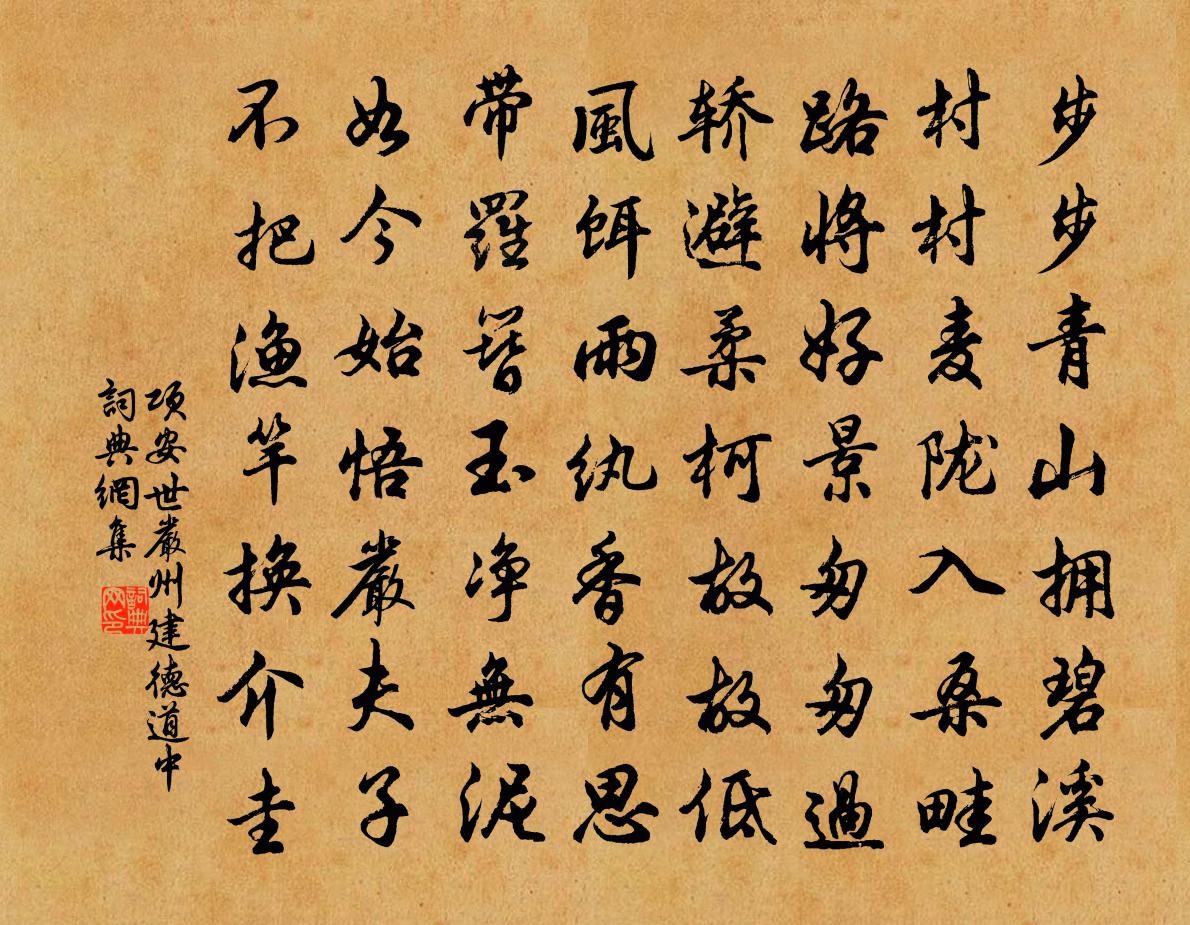 步步青山拥碧溪
村村麦陇入桑畦
路将好景匆匆過
轿避柔柯故故低
風饵雨纨香有思
带羅簪玉净無泥
如今始悟嚴夫子
不把渔竿换介圭
项安世嚴州建德道中
詞典網集
詞典网印